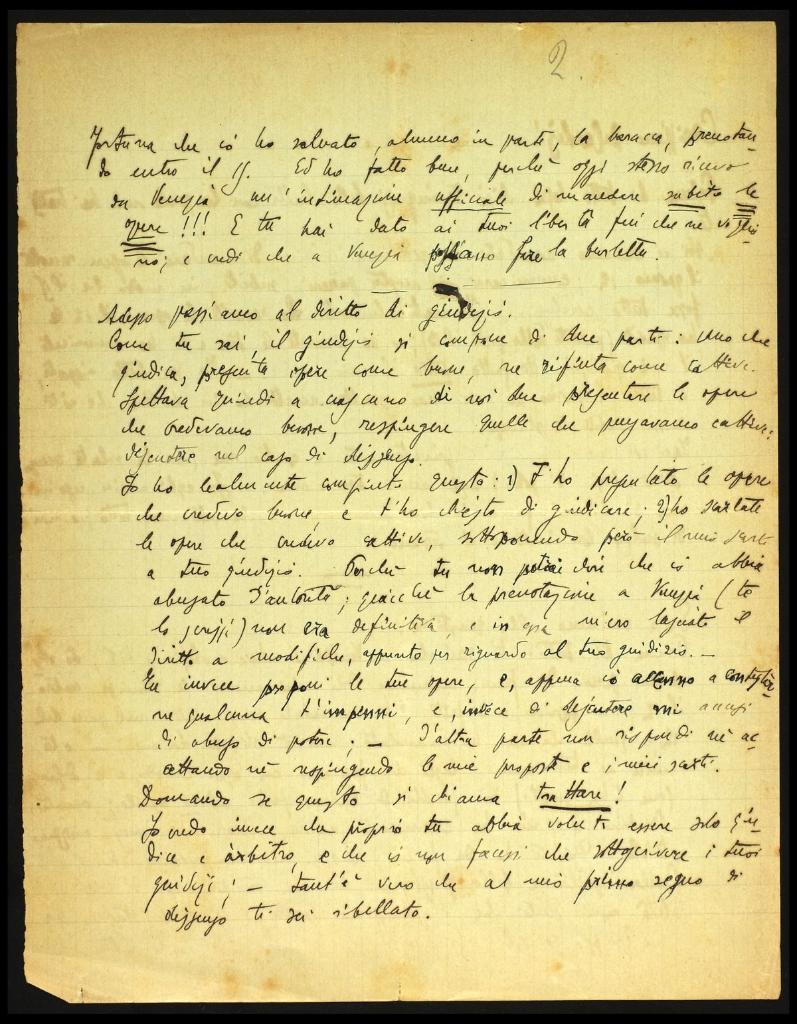 2.
Fortuna che io ho salvato, almeno in parte, la baracca, prenotan-
do entro il 15. Ed ho fatto bene, perchè oggi stesso ricevo
da Venezia un'intimazione ufficiale di mandare subito le
opere!!! E tu hai dato ai tuoi libertà fin che ne voglio-
no; e credi che a Venezia possano fare la burletta.
Adesso passiamo al diritto di giudizio.
Come tu sai, il giudizio si compone di due parti: uno che
giudica, presenta opere come buone, ne rifiuta come cattive.
Spettava quindi a ciascuno di noi due presentare le opere
che credevamo buone, respingere quelle che pensavamo cattive:
discutere nel caso di dissenso.
Io ho lealmente compiuto questo: 1) T'ho presentato le opere
che credevo buone e t'ho chiesto di giudicare; 2) ho scartate
le opere che credevo cattive, sottoponendo però il mio scarto
a tuo giudizio. Perchè tu non potessi dire che io abbia
abusato d'autorità; giacchè la prenotazione a Venezia (te
lo scrissi) non era definitiva, e in essa m'ero lasciato il
diritto a modifiche, appunto per riguardo al tuo giudizio. —
Tu invece proponi le tue opere, e, appena io accenno a contestar-
ne qualcuna t'impenni, e, invece di discutere mi accusi
di abuso di potere; — D'altra parte non rispondi nè ac-
cettando nè respingendo le mie proposte e i miei scarti.
Domando se questo si chiama trattare!
Io credo invece che proprio tu abbia voluto essere solo giu-
dice e arbitro, e che io non facessi che sottoscrivere i tuoi
giudizi; — tant'è vero che al mio primo segno di
dissenso ti sei ribellato.